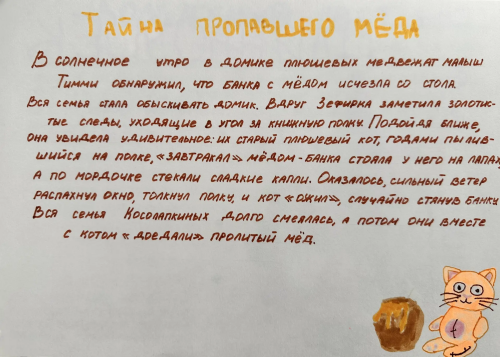 Тайна пропавшего мёда
В солнечное утро в домике плюшевых медвежат малыш
Тимми обнаружил, что банка с мёдом исчезла со стола.
Вся семья стала обыскивать домик. Вдруг Зефирка заметила золотис-
тые следы, уходящие в угол за книжную полку. Подойдя ближе,
она увидела удивительное: их старый плюшевый кот, годами пылив-
шийся на полке, «завтракал» мёдом – банка стояла у него на лапах,
а по мордочке стекали сладкие капли. Оказалось, сильный ветер
распахнул окно, толкнул полку, и кот «ожил», случайно стянув банку
Вся семья Косолапкиных долго смеялась, а потом они вместе
с котом «доедали» пролитый мёд.